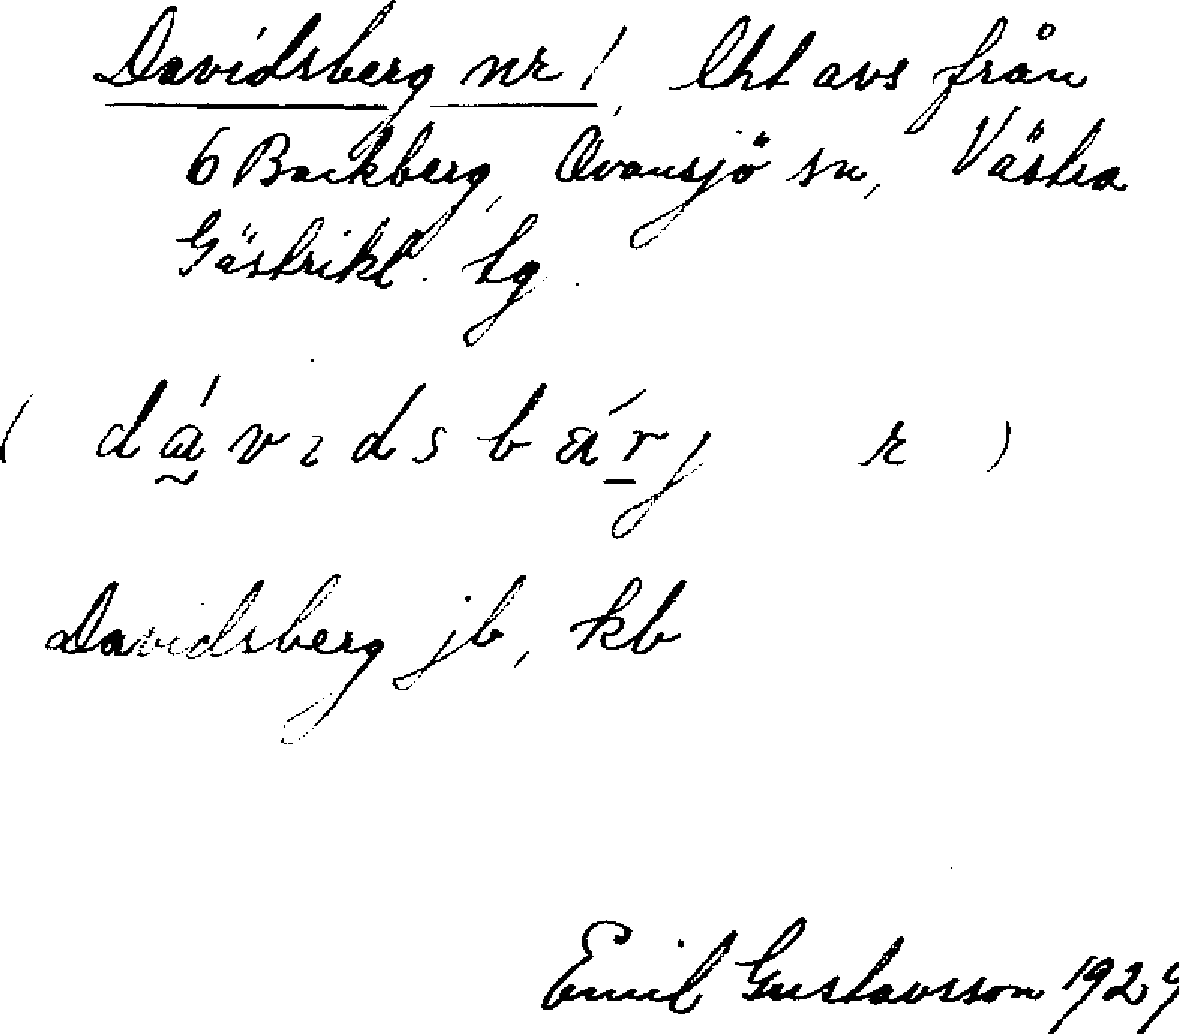 Davidsberg nr 1, lht avs från
6 Backberg, Ovansjö sn, Västra
Gästrikl. tg.
( dávidsbárj r )
Davidsberg jb, kb
Emil Gustavsson 1929